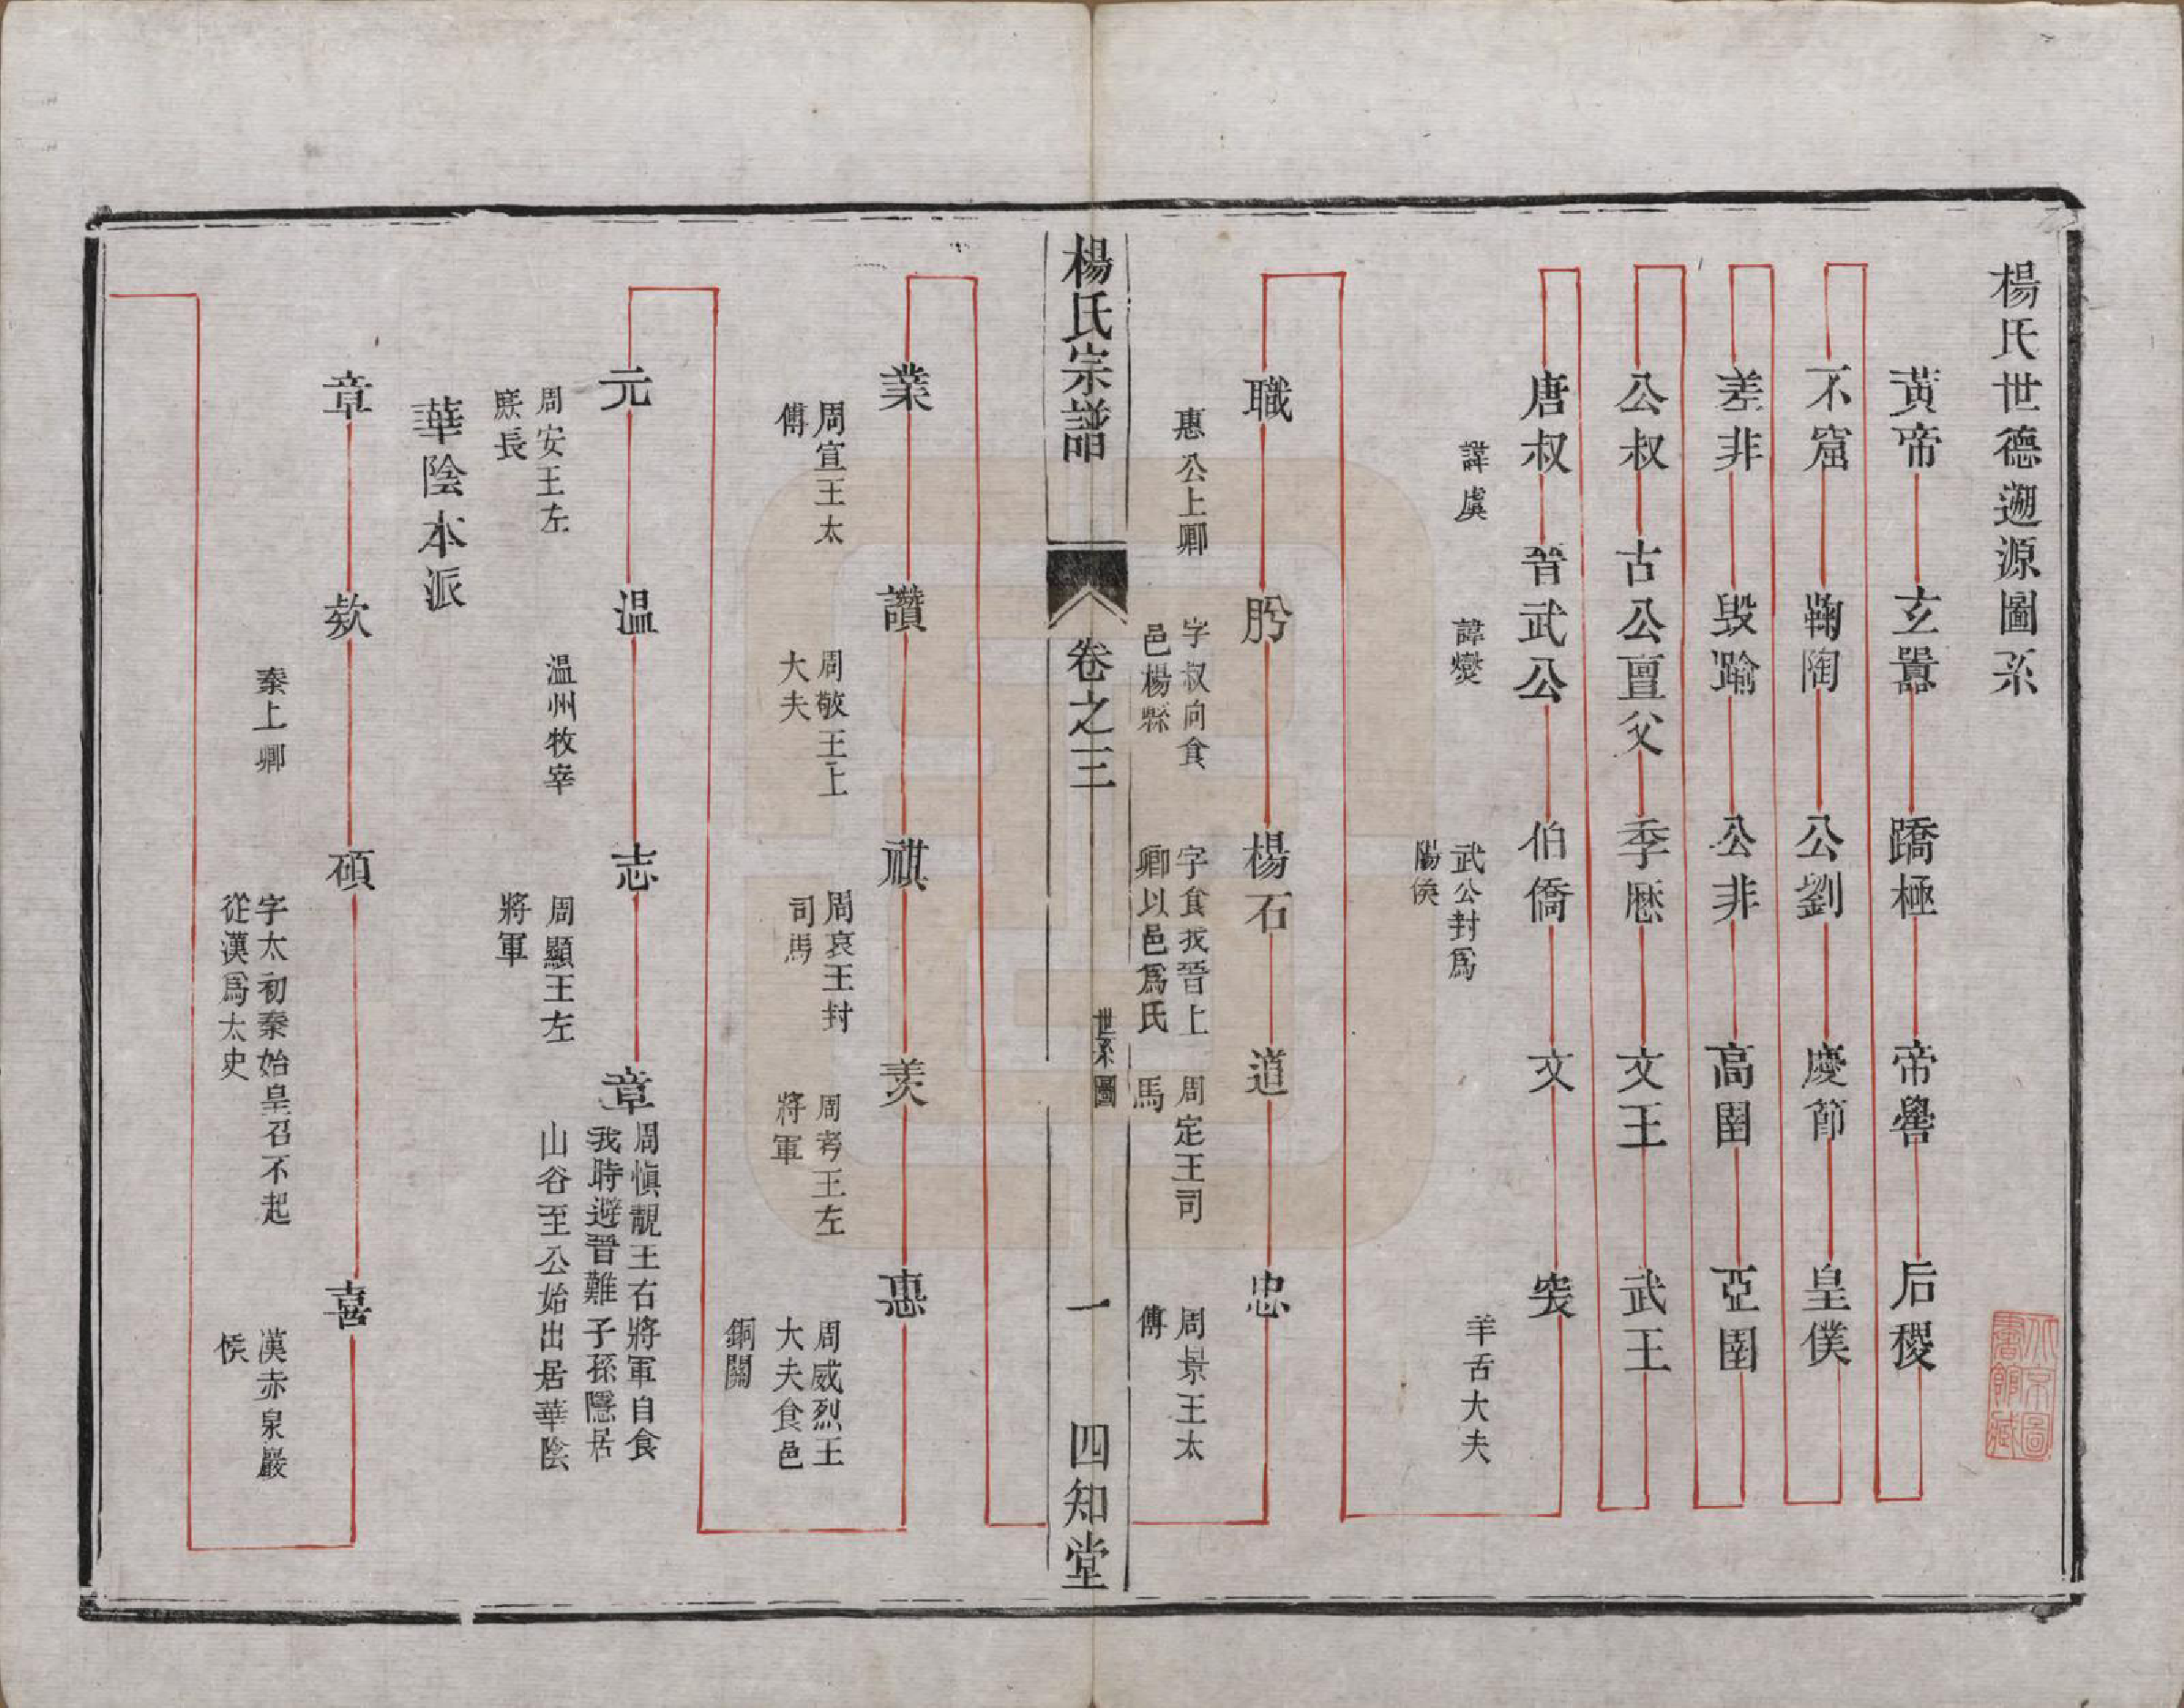 楊氏世德遡源圖系
黃帝
玄囂
蹻極
帝嚳
后稷
不窟
鞠陶
公劉
慶節
皇僕
差非
毀踰
公非
高圉
亞圉
公叔
古公亶父
季歷
文王
武王
唐叔
諱虞
晉武公
諱燮
伯僑
武公封爲
陽侯
文
突
羊舌大夫
職
惠公上卿
肸
字叔向食
邑楊縣
楊石
字食我晉上
卿以邑爲氏
道
周定王司
馬
忠
周景王太
傅
楊氏宗譜
卷之三
世系圖
一
四知堂
業
周宣王太
傅
讚
周敬王上
大夫
祺
周哀王封
司馬
羙
周考王左
將軍
惠
周威烈王
大夫食邑
銅關
元
周安王左
庶長
温
温州牧宰
志
周顯王左
將軍
章
周慎靚王右將軍自食
我時避晉難子孫隱居
山谷至公始出居華陰
華陰本派
章
欵
秦上卿
碩
字太初秦始皇召不起
從漢爲太史
喜
漢赤泉嚴
侯